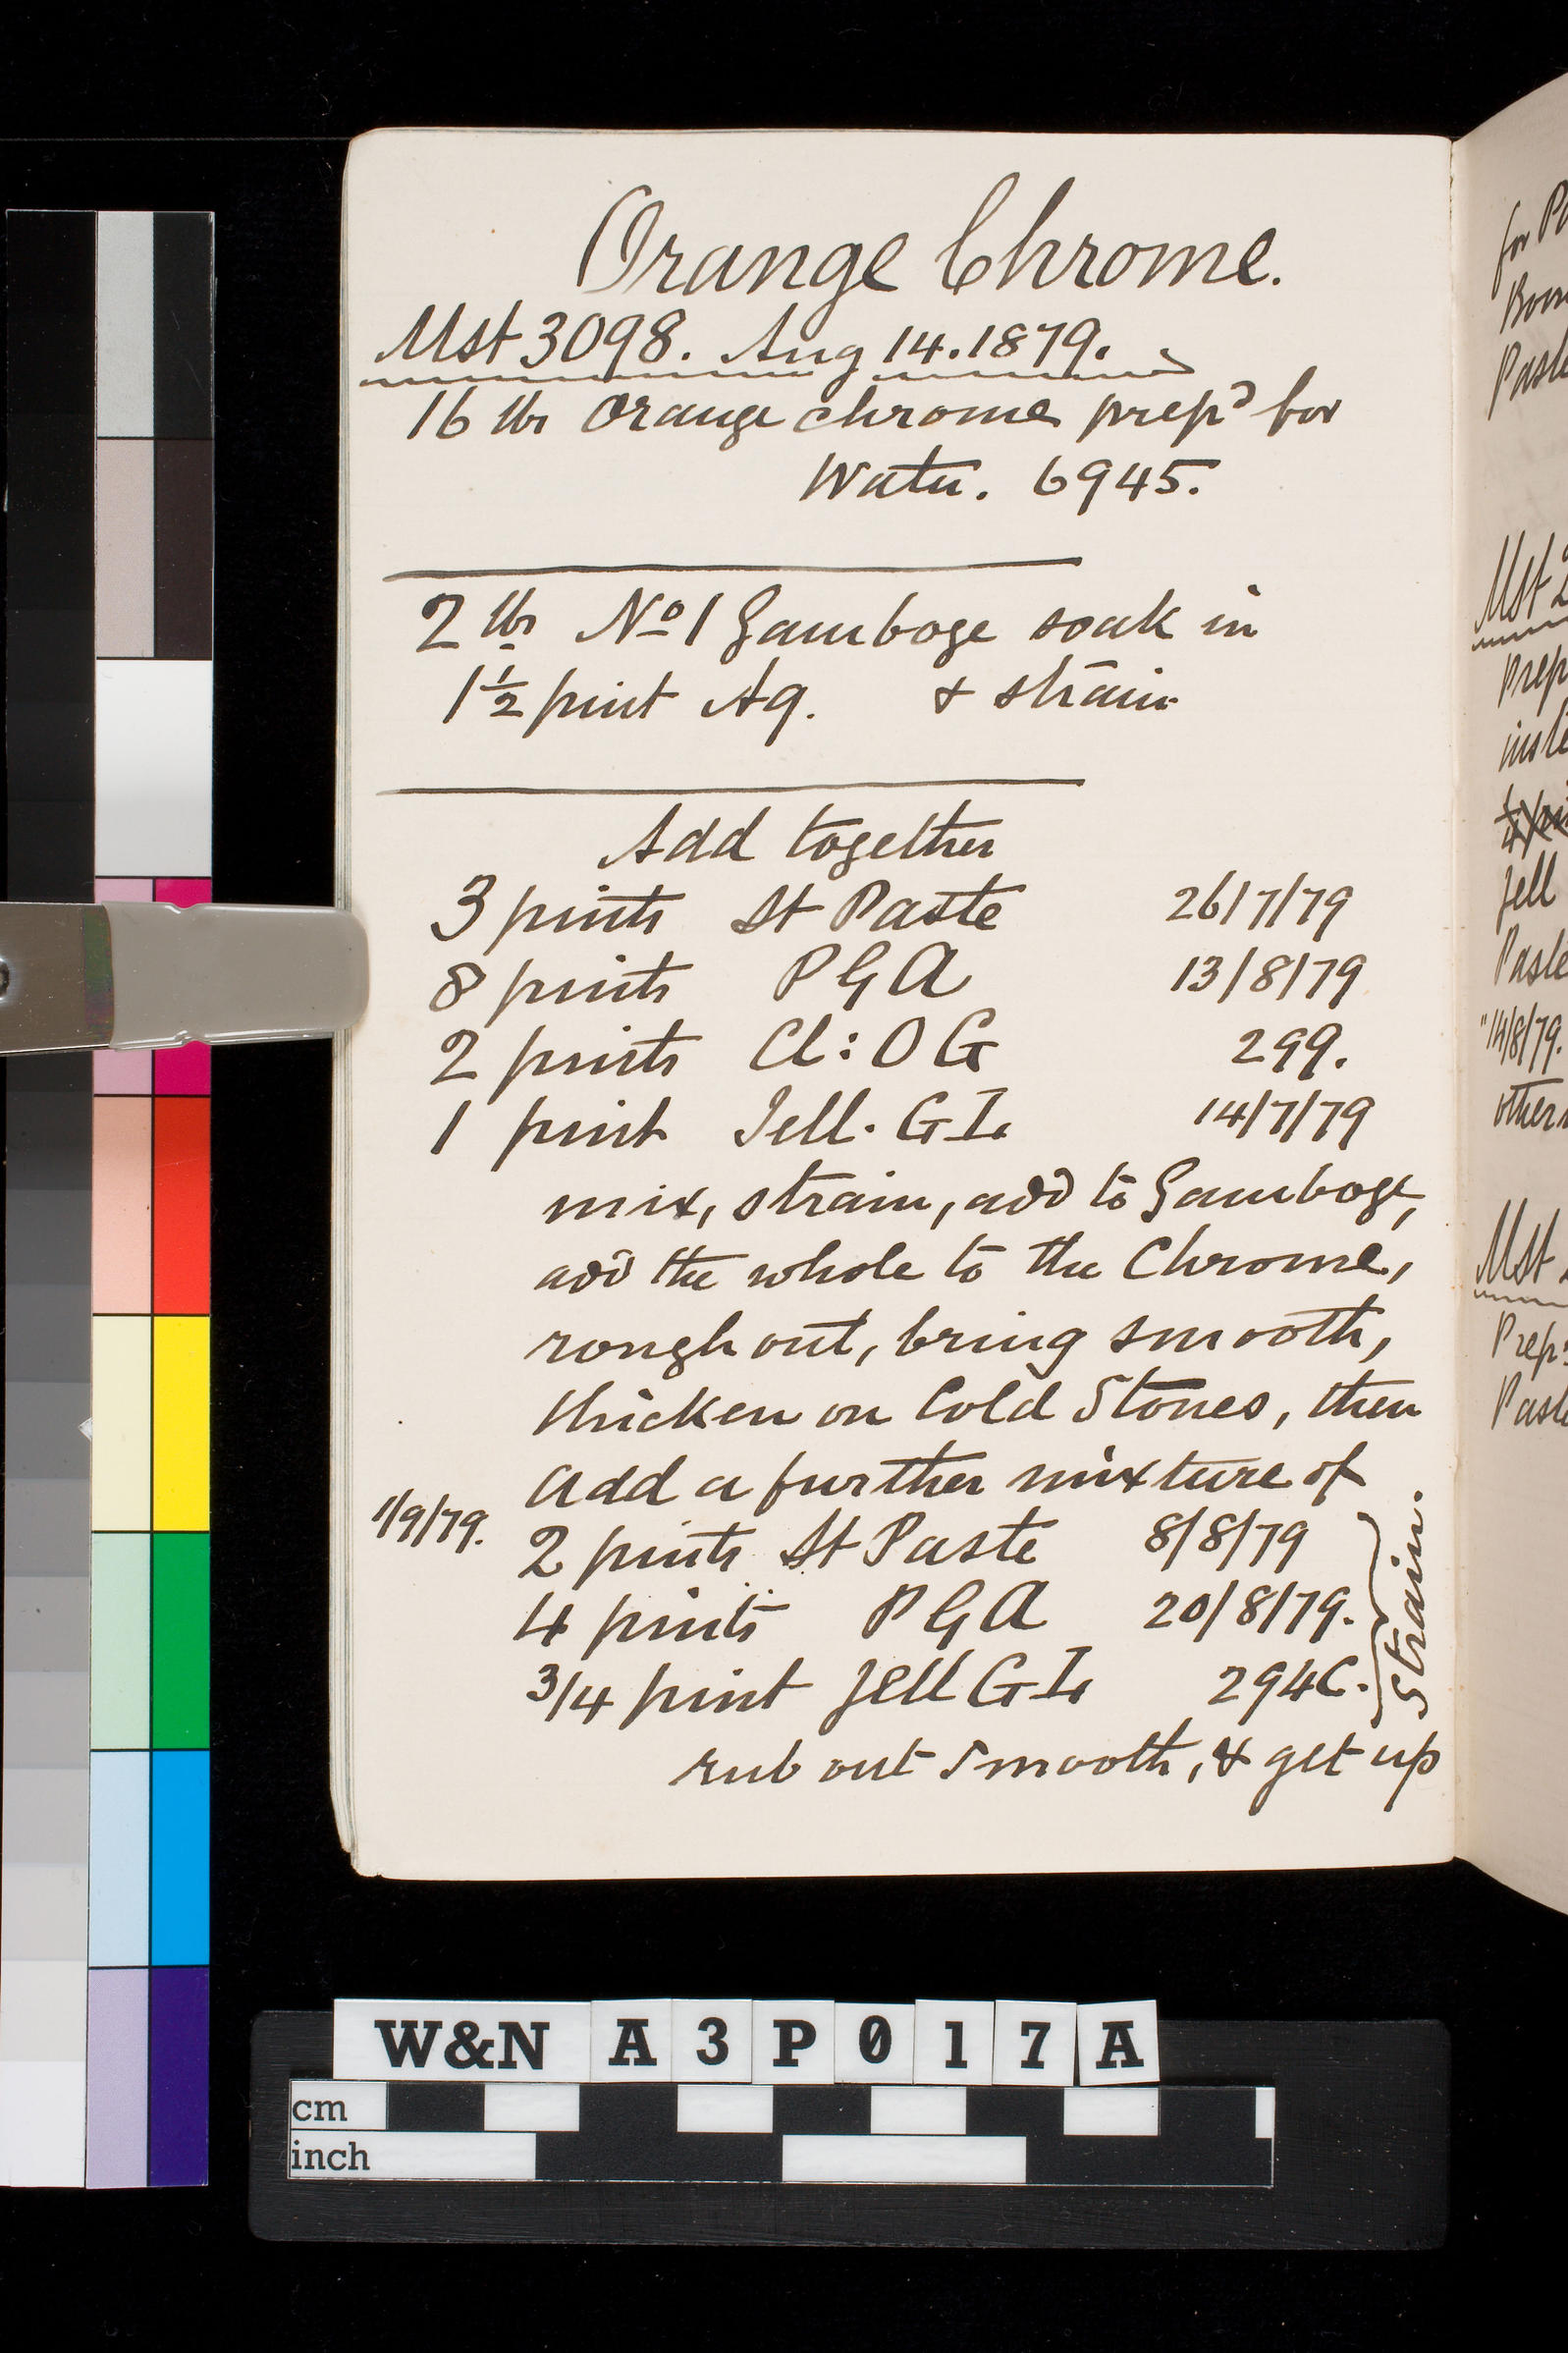 Orange Chrome.
Mst 3098. Aug 14. 1879.
16 lbs Orange chrome prepd for
Water. 6945.
2 lbs No 1 Gamboge soak in
1 1/2 pint Aq. & strain
Add together
3 pints St Paste 26/7/79
8 pints PGA 13/8/79
2 pints Cl: OG 299.
1 pint Jell. GI. 14/7/79
mix, strain, add to Gamboge,
add the whole to the Chrome,
rough out, bring smooth,
thicken on Cold Stones, then
add a further mixture of
1/9/79. 2 pints St Paste 8/8/79
4 pints PGA 20/8/79.
3/4 pint Jell GI. 294C.
Strain.
rub out smooth, & get up
for
Paste
Mst
prep
jell
Paste
"14/8/79.
other
Mst
Prep
Paste
W&N A3P017A
cm
inch